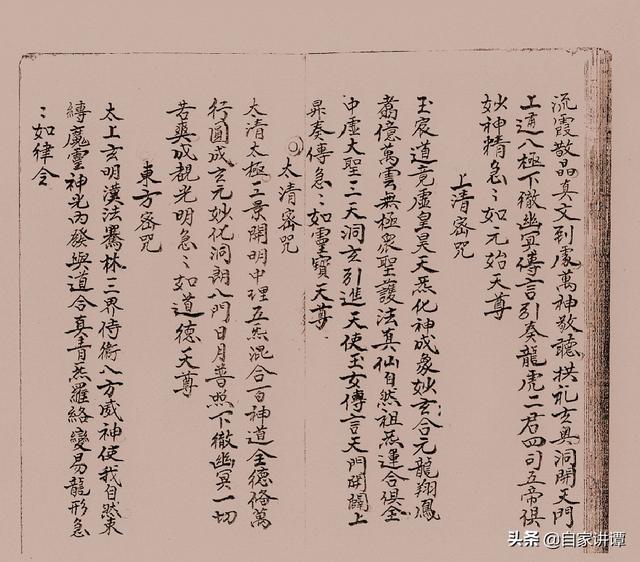 流霞散晶真文到處萬神敬聽拱礼玄奥洞開天門
上通八極下徹幽冥傳言引奏龍虎二君四司五帝俱
妙神精急〻如元始天尊
上清密咒
玉宸道竟虛皇昊天炁化神成象妙玄合元龍翔鳳
翥億萬雲無極衆聖護法真仙自然祖炁運合俱全
中虛大聖三天洞玄引進天使玉女傳言天門開闢上
昇奏傳急〻如靈寶天尊
太清密咒
太清太極三景開明中理五炁混合百神道全德俻萬
行圓成玄元妙化洞朗八門日月普照下徹幽冥一切
若奭成覩光明急〻如道德天尊
東方密咒
太上玄明漢法騫林三界侍衛八方威神使我自然束
縛魔靈神光內發與道合真青炁羅絡變易龍形急
〻如律令
头条 @自家讲谭